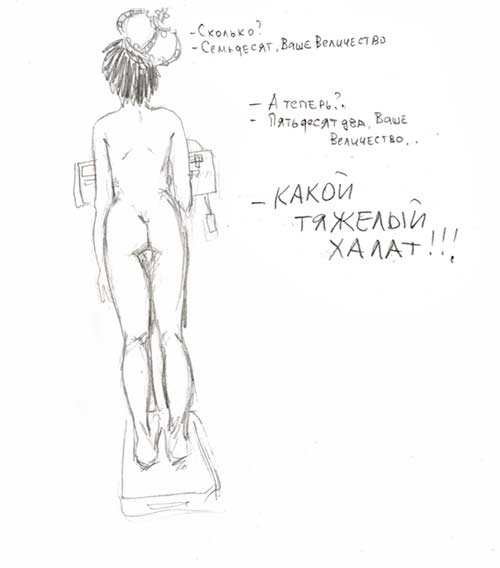 - Сколько?
- Семьдесят, Ваше Величество
- А теперь?
- Пятьдесят два, Ваше
Величество..
- КАКОЙ
ТЯЖЕЛЫЙ
ХАЛАТ!!!